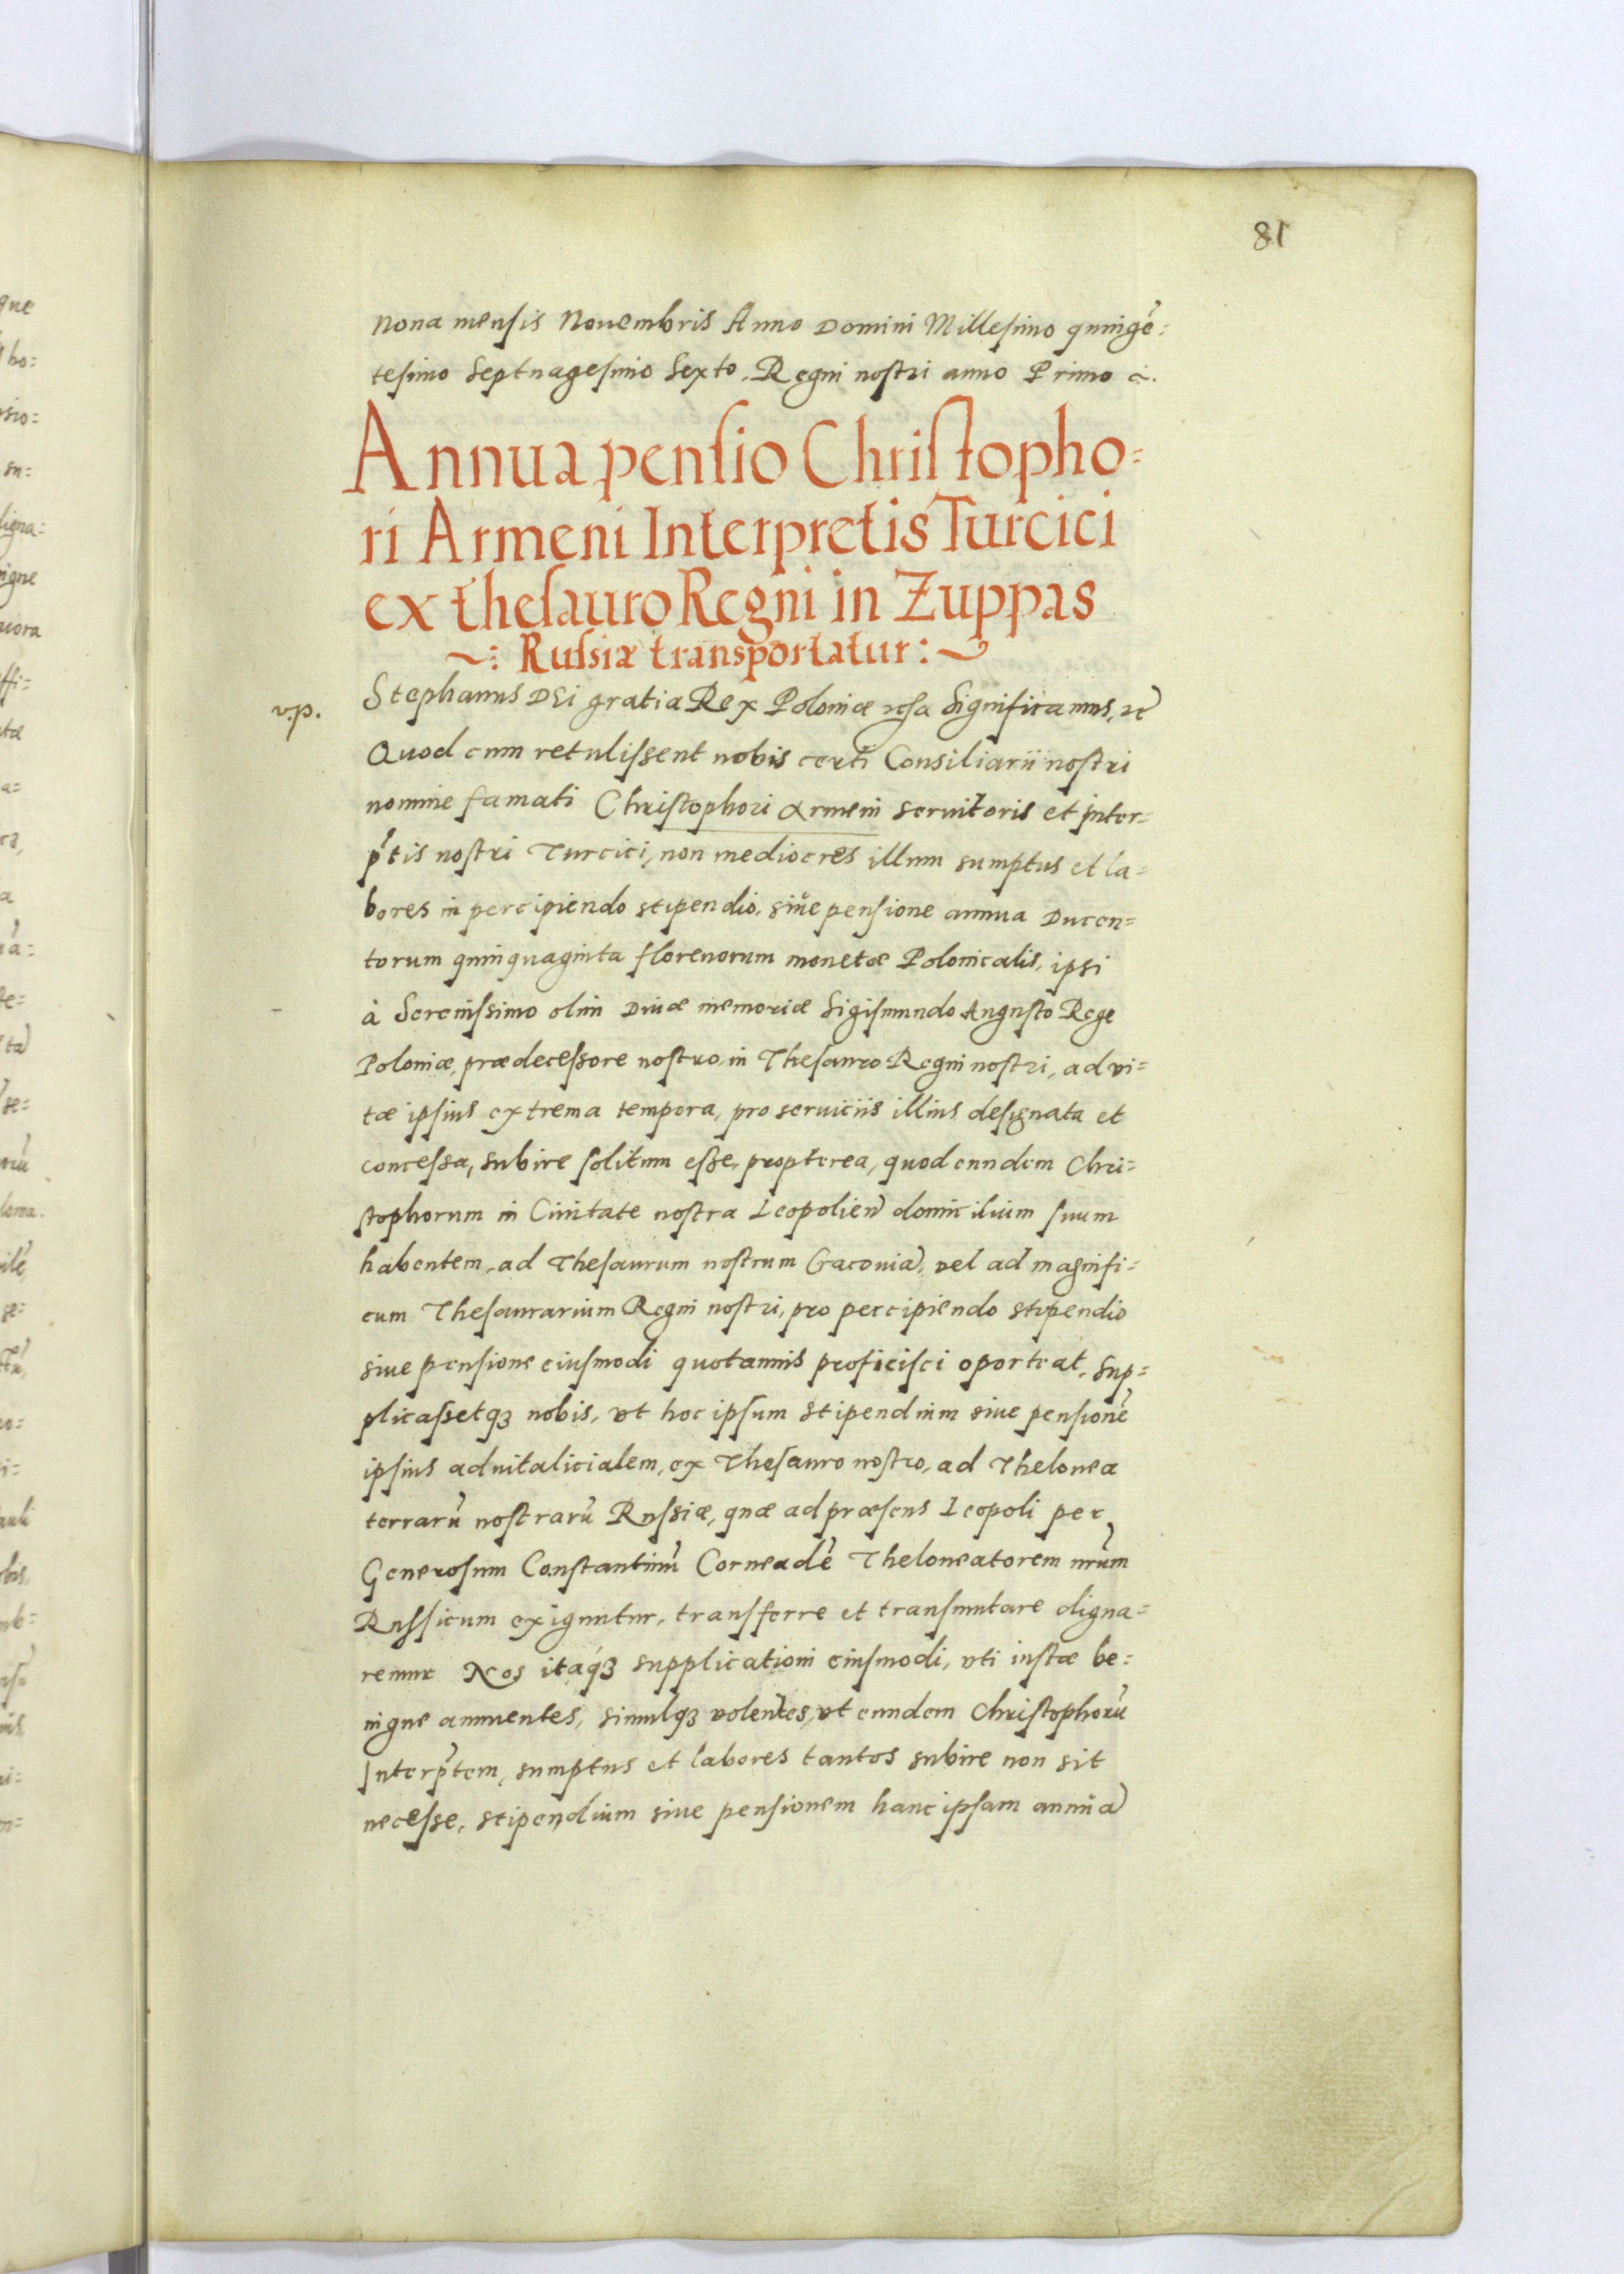 81
nona mensis Nouembris Anno Domini Millesimo quingẽ=
tesimo Septuagesimo Sexto. Regni nostri anno Primo &.
Annua pensio Christopho=
ri Armeni Interpretis Turcici
ex thesauro Regni in Zuppas
~: Russiæ transportatur :~
v.p.
Stephanus DEi gratia Rex Poloniæ Significamus,
Quod cum retulissent nobis certi Consiliarii nostri
nomine famati Christophori Armeni seruitoris et inter=
p̃tis nostri Turcici, non mediocres illum sumptus et la=
bores in percipiendo stipendio, siue pensione annua Ducen=
torum quinquaginta florenorum monetæ Polonicalis, ipsi
à Serenissimo olim Diuæ memoriæ Sigismundo Augusto Rege
Poloniæ, prædecessore nostro, in Thesauro Regni nostri, ad vi=
tæ ipsius extrema tempora, pro seruiciis illius designata et
concessa, subire solitum esse, propterea, quod eundem Chri=
stophorum in Ciuitate nostra Leopolien̄ domicilium suum
habentem, ad Thesaurum nostrum Cracouiã, vel ad magnifi=
cum Thesaurarium Regni nostri, pro percipiendo stipendio
siue pensione eiusmodi quotannis proficisci oporteat, Sup=
plicassetq3 nobis, vt hoc ipsum stipendium siue pensionẽ
ipsius aduitalicialem, ex Thesauro nostro, ad Thelonea
terrarũ nostrarũ Russiæ, quæ ad præsens Leopoli per
Generosum Constantinũ Corneadẽ Theloneatorem nr̃um
Russicum exiguntur, transferre et transmutare digna=
remur Nos itaq́3 supplicationi eiusmodi, vti iustæ be=
nigne annuentes, simulq3 volentes, vt eundem Christophorũ
Interp̃tem, sumptus et labores tantos subire non sit
necesse, stipendium siue pensionem hanc ipsam annuã